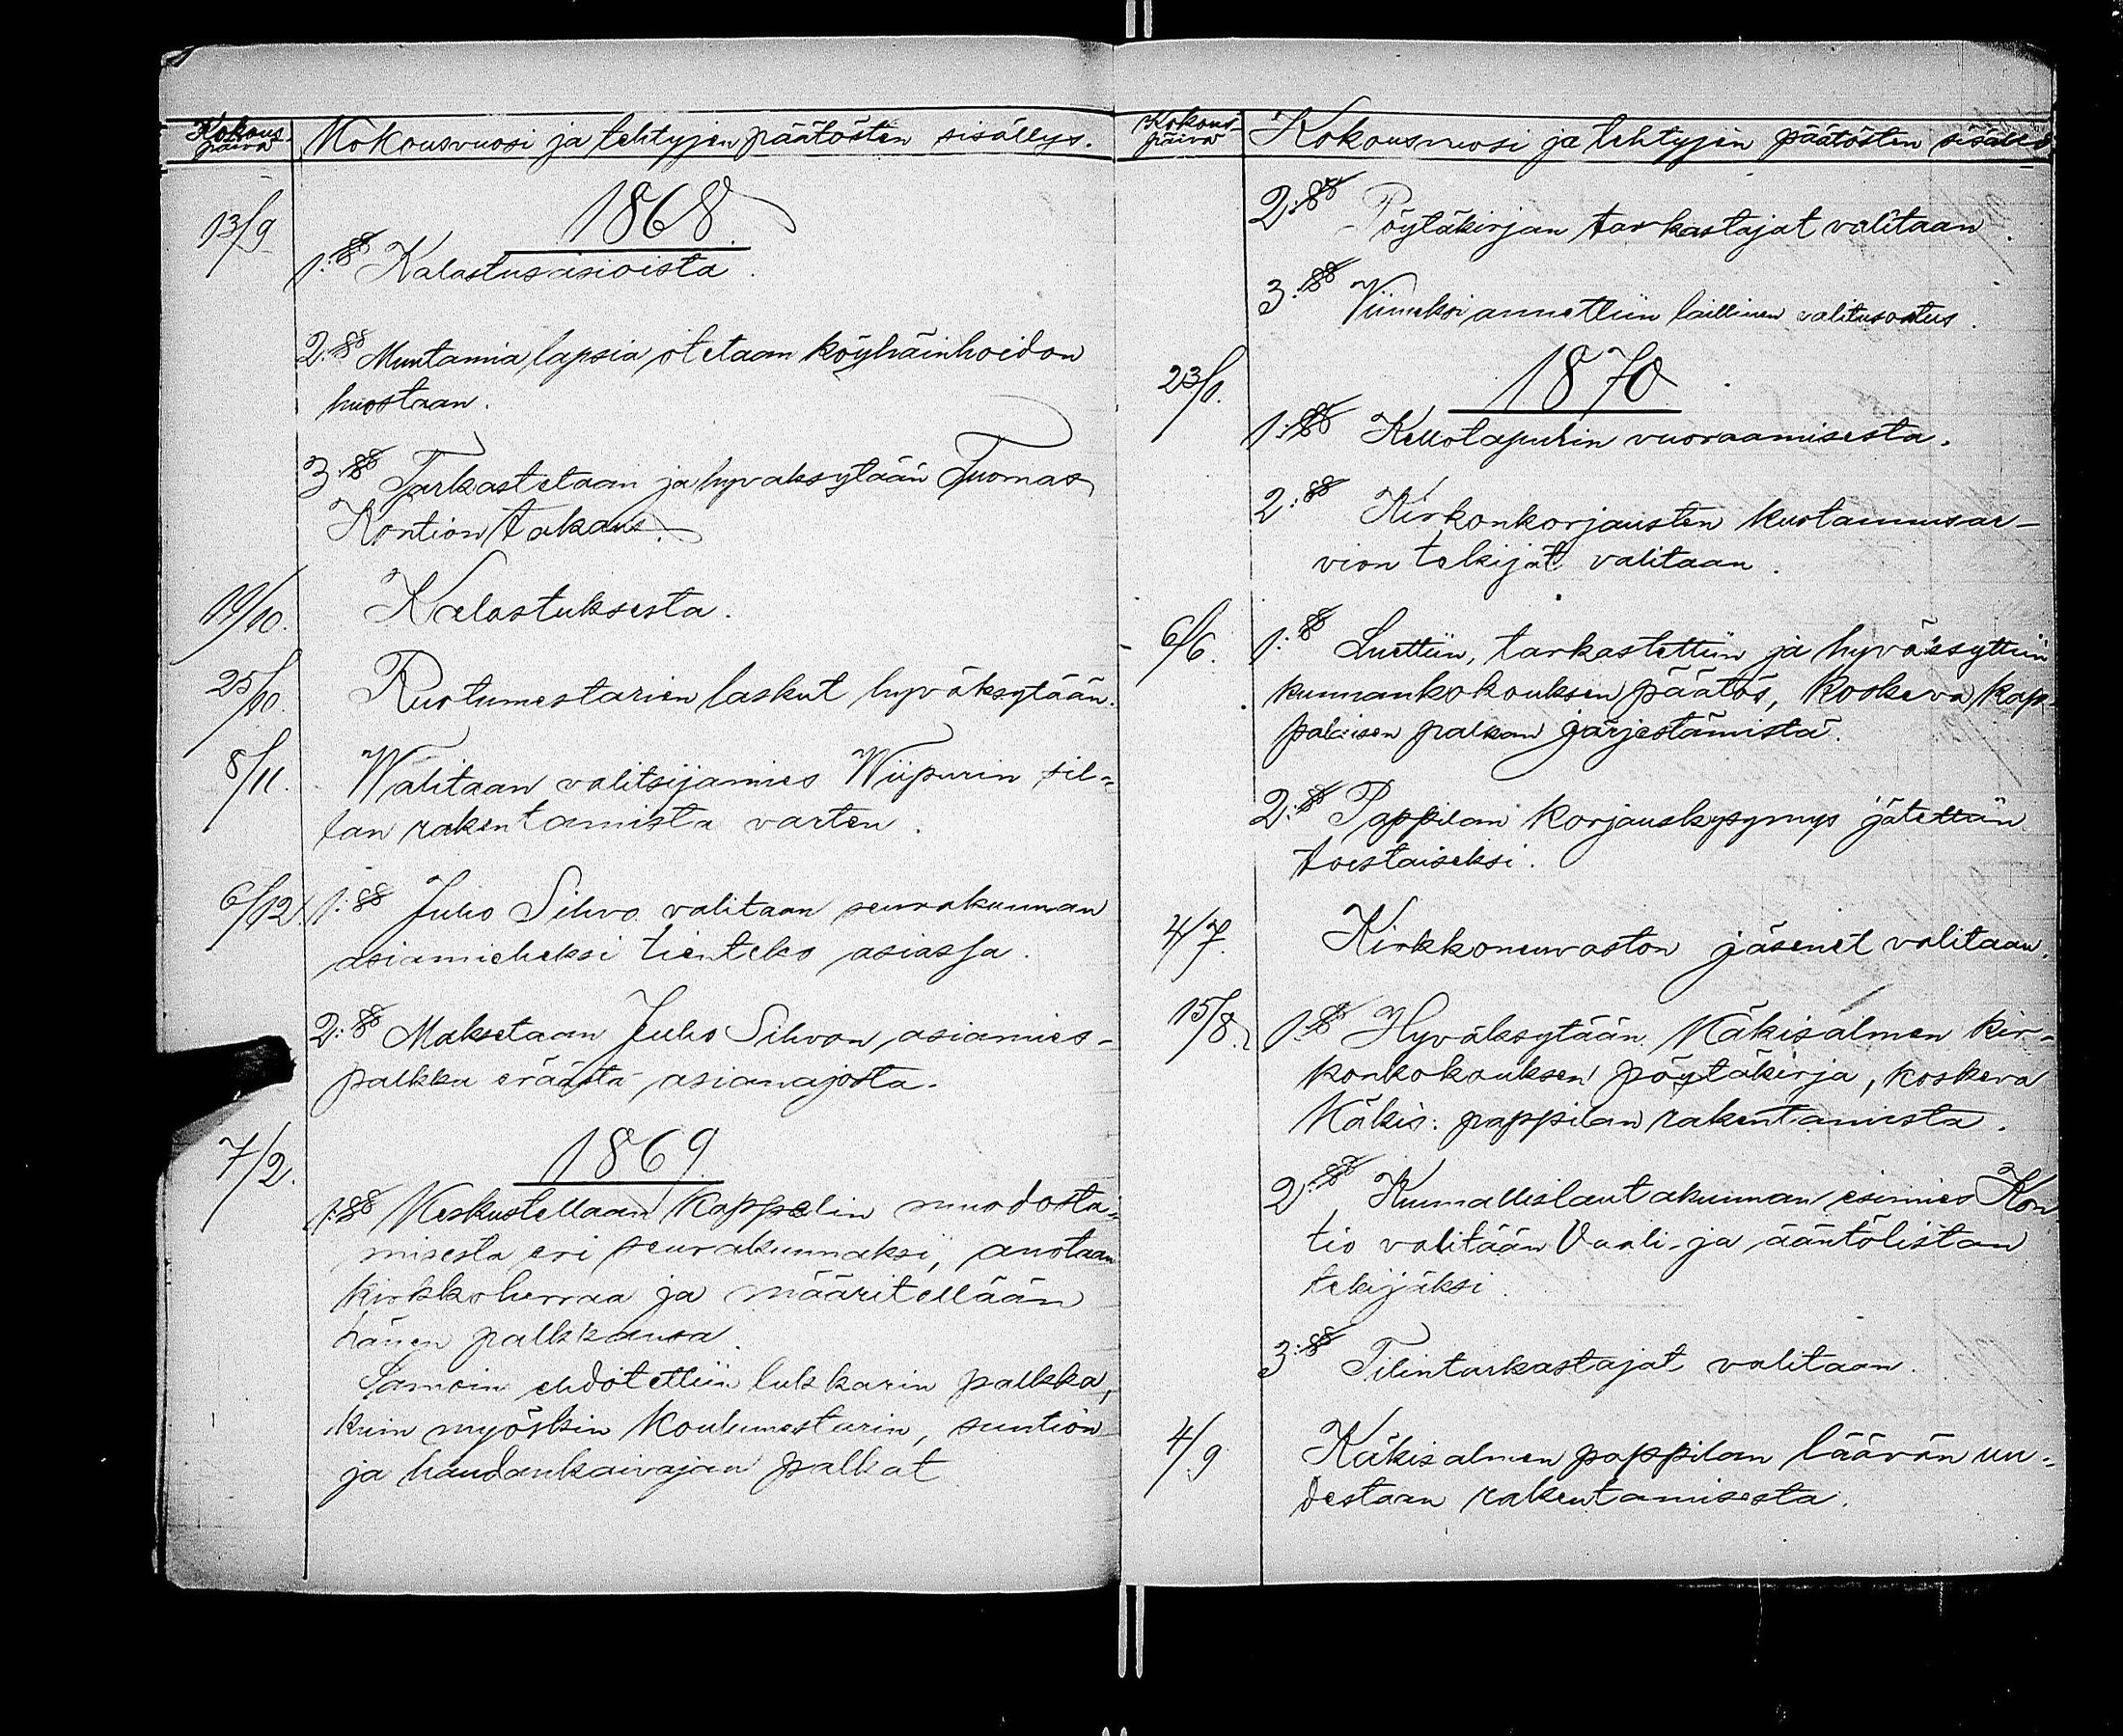 Kokous-
päivä
Kokousvuosi ja tehtyjen päätösten sisällys.
1868.
13/9
1:§§ Kalastusasioista.
2:§§ Muutamia lapsia otetaan köyhäinhoidon
huostaan.
3:§§ Tarkastetaan ja hyväksytään Tuomas
Kontion takaus.
11/10. Kalastuksesta.
25/10. Ruotumestarien laskut hyväksytään.
8/11. Walitaan valitsijamies Wiipurin sil-
lan rakentamista varten.
6/12. 1:§§ Juho Sihvo valitaan seurakunnan
asiamieheksi tienteko asiassa.
2:§§ Maksetaan Juho Sihvon asiamies-
palkka eräästä asianajosta.
1869.
7/2.
1:§§ Keskustellaan Kappelin muodosta-
misesta eri seurakunnaksi, anotaan
kirkkoherraa ja määritellään
hänen palkkansa.
Samoin ehdotettiin lukkarin palkka,
kuin myöskin Koulumestarin, suntion
ja haudankaivajan palkat
Kokous-
päivä
Kokousvuosi ja tehtyjen päätösten sisällys
2:§§ Pöytäkirjan tarkastajat valitaan.
3:§§ Viimeksi annettiin laillinen valitusosotus.
1870.
23/1.
1:§§ Kellotapulin vuoraamisesta.
2:§§ Kirkonkorjausten kustannusar-
vion tekijät valitaan.
6/6. 1:§§ Luettiin, tarkastettiin ja hyväksyttiin
kunnankokouksen päätös, koskeva kap-
palaisen palkan järjestämistä.
2:§§ Pappilan korjauskysymys jätettän
toistaiseksi.
4/7. Kirkkoneuvoston jäsenet valitaan.
15/8. 1:§§ Hyväksytään Käkisalmen kir-
konkokouksen pöytäkirja, koskeva
Käkis: pappilan rakentamista.
2:§§ Kunnallislautakunnan esimies Kon-
tio valitään Vaali- ja ääntölistan
tekijäksi.
3:§§ Tilintarkastajat valitaan.
4/9 Käkisalmen pappilan läävän uu-
destaan rakentamisesta.